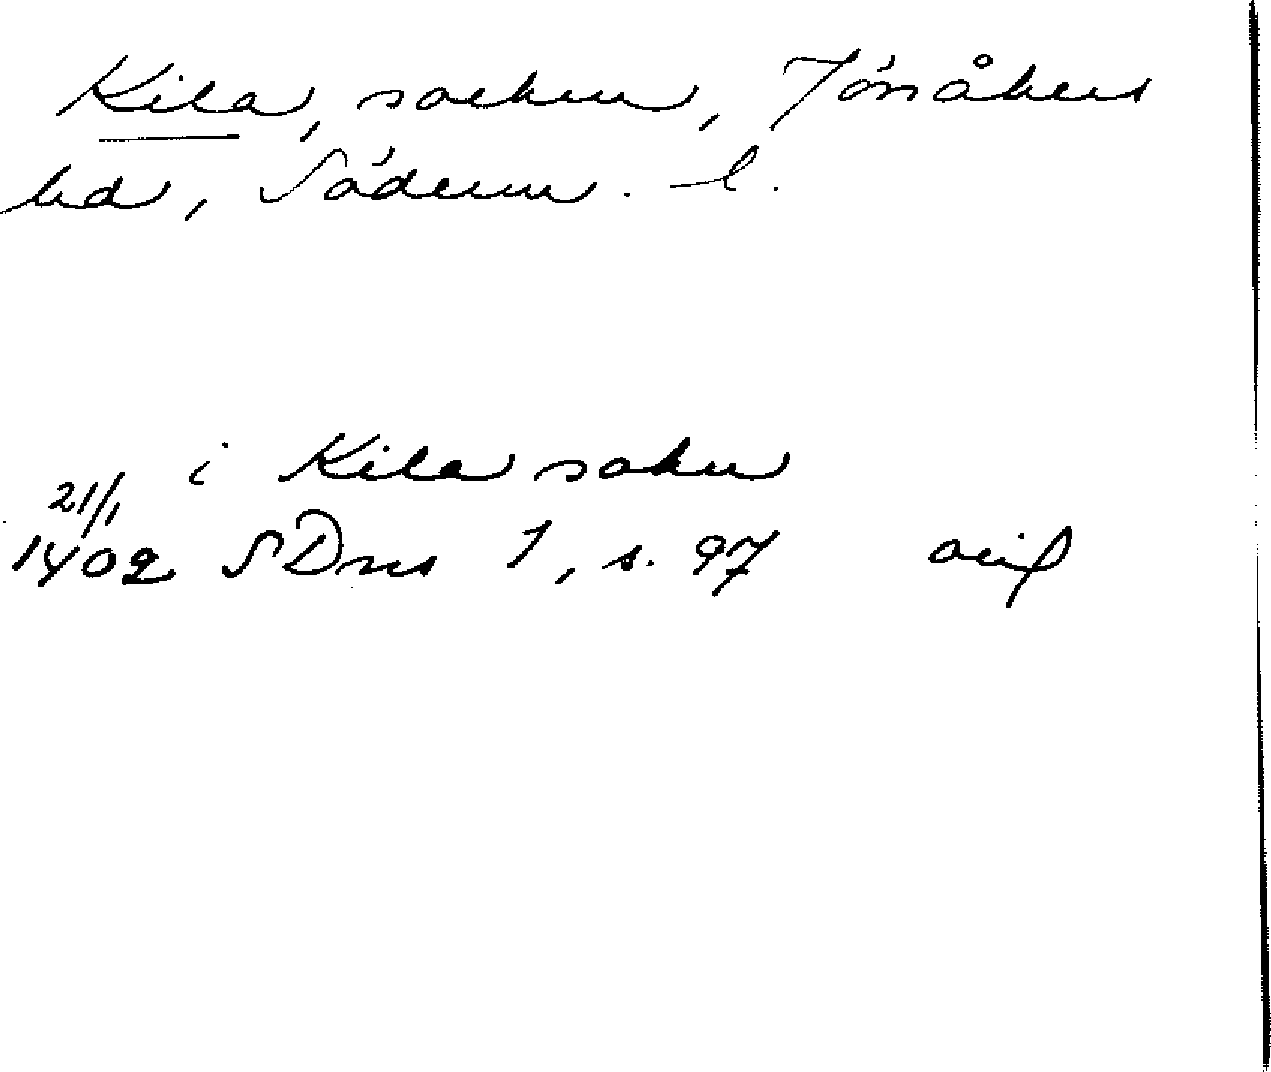 Kila, socken, Jönåkers
hd, Söderm. l.
i Kila sokn
21/1
1402 SDns 1, s. 97 orig